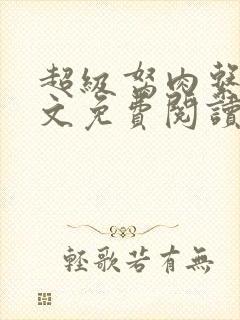 超級窩肉
文免費閱讀
輕歌若有無